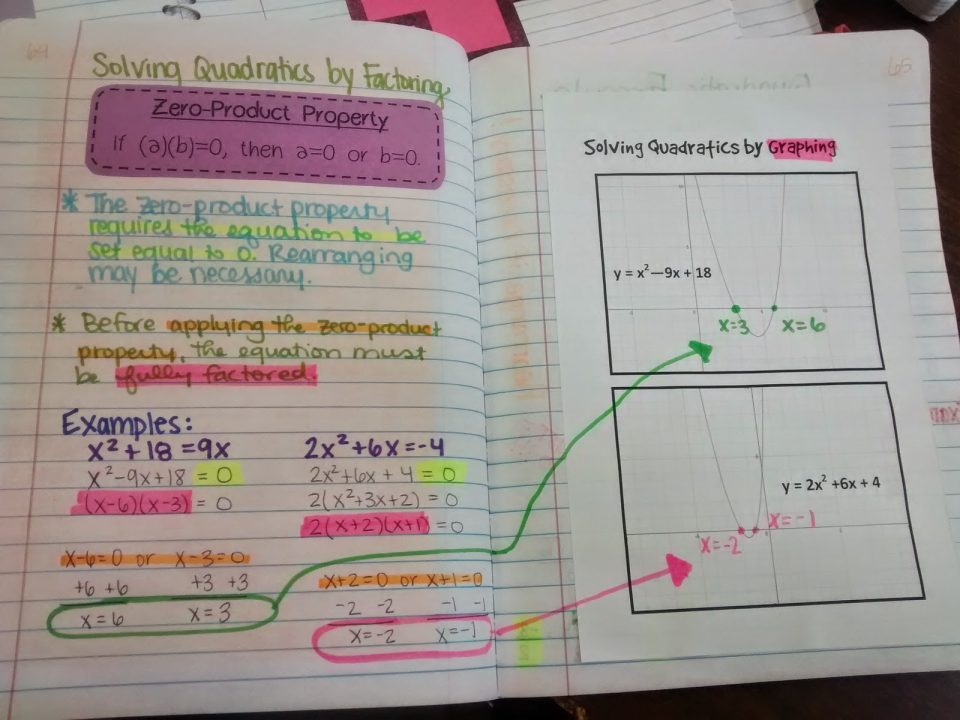 64
Solving Quadratics by Factoring
Zero-Product Property
If (a)(b)=0, then a=0 or b=0.
* The zero-product property
requires the equation to be
set equal to 0. Rearranging
may be necessary.
* Before applying the zero-product
property, the equation must
be fully factored.
Examples:
x²+18=9x
x²-9x+18=0
(x-6)(x-3)=0
x-6=0 or x-3=0
+6 +6 +3 +3
x=6 x=3
2x²+6x=-4
2x²+6x+4=0
2(x²+3x+2)=0
2(x+2)(x+1)=0
x+2=0 or x+1=0
-2 -2 -1 -1
x=-2 x=-1
65
Solving Quadratics by Graphing
y = x²—9x + 18
x=3 x=6
y = 2x² +6x + 4
x=-1
x=-2